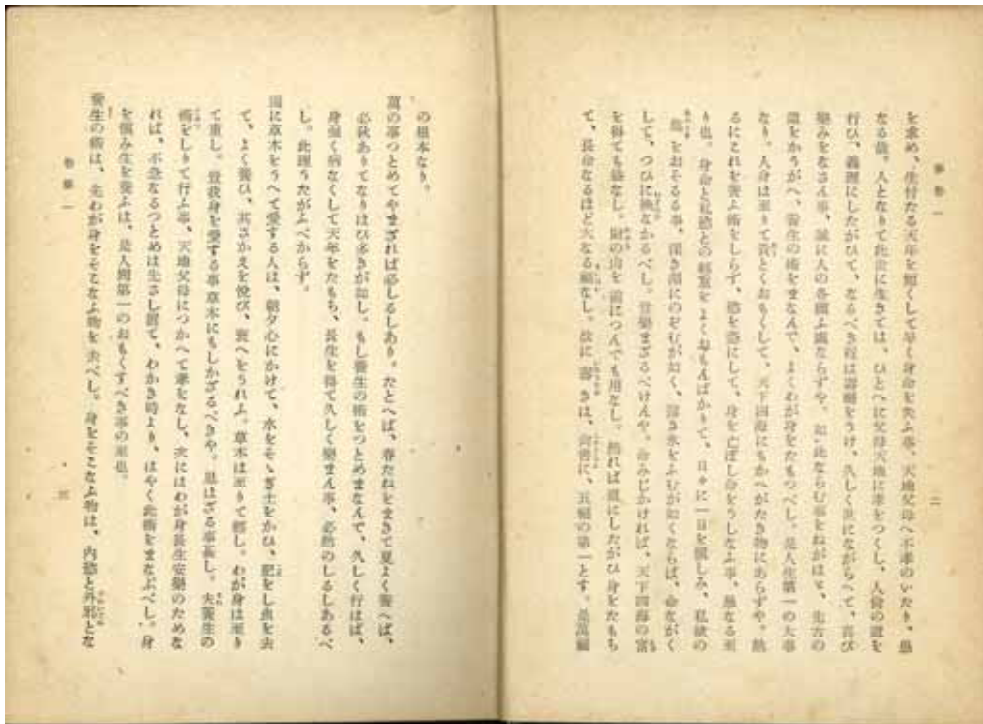 卷第一
二
を求め、生付たる天年を短くして早く身命を失ふ事、天地父母へ不孝のいたり、愚
なる哉。人となりて此世に生きては、ひとへに父母天地に孝をつくし、人倫の道を
行ひ、義理にしたがひて、なるべき程は壽福をうけ、久しく世にながらへて、喜び
樂みをなさん事、誠に人の各願ふ處ならずや。如此ならむ事をねがはゞ、先古の
道をかうがへ、養生の術をまなんで、よくわが身をたもつべし。是人生第一の大事
なり。人身は至りて貴とくおもくして、天下四海にもかへがたき物にあらずや。然
るにこれを養ふ術をしらず、慾を恣にして、身を亡ぼし命をうしなふ事、愚なる至
り也。身命と私慾との輕重をよくおもんばかりて、日々に一日を愼しみ、私慾の
危をおそるる事、深き淵にのぞむが如く、薄き氷をふむが如くならば、命ながく
して、つひに殃なかるべし。豈樂まざるべけんや。命みじかければ、天下四海の富
を得ても益なし。財の山を前につんでも用なし。然れば道にしたがひ身をたもち
て、長命なるほど大なる福なし。故に壽きは、尚書に、五福の第一とす。是萬福
の根本なり。
萬の事つとめてやまざれば必しるしあり。たとへば、春たねをまきて夏よく養へば、
必秋ありてなりはひ多きが如し。もし養生の術をつとめまなんで、久しく行はば、
身強く病なくして天年をたもち、長生を得て久しく樂まん事、必然のしるしあるべ
し。此理うたがふべからず。
園に草木をうへて愛する人は、朝夕心にかけて、水をそゝぎ土をかひ、肥をし虫を去
て、よく養ひ、其さかえを悦び、衰へをうれふ。草木は至りて輕し。わが身は至り
て重し。豈我身を愛する事草木にもしかざるべきや。思はざる事甚し。夫養生の
術をしりて行ふ事、天地父母につかへて孝をなし、次にはわが身長生安樂のためな
れば、不急なるつとめは先さし置て、わかき時より、はやく此術をまなぶべし。身
を愼み生を養ふは、是人間第一のおもくすべき事の至也。
養生の術は、先わが身をそこなふ物を去べし。身をそこなふ物は、内慾と外邪とな
卷第一
三